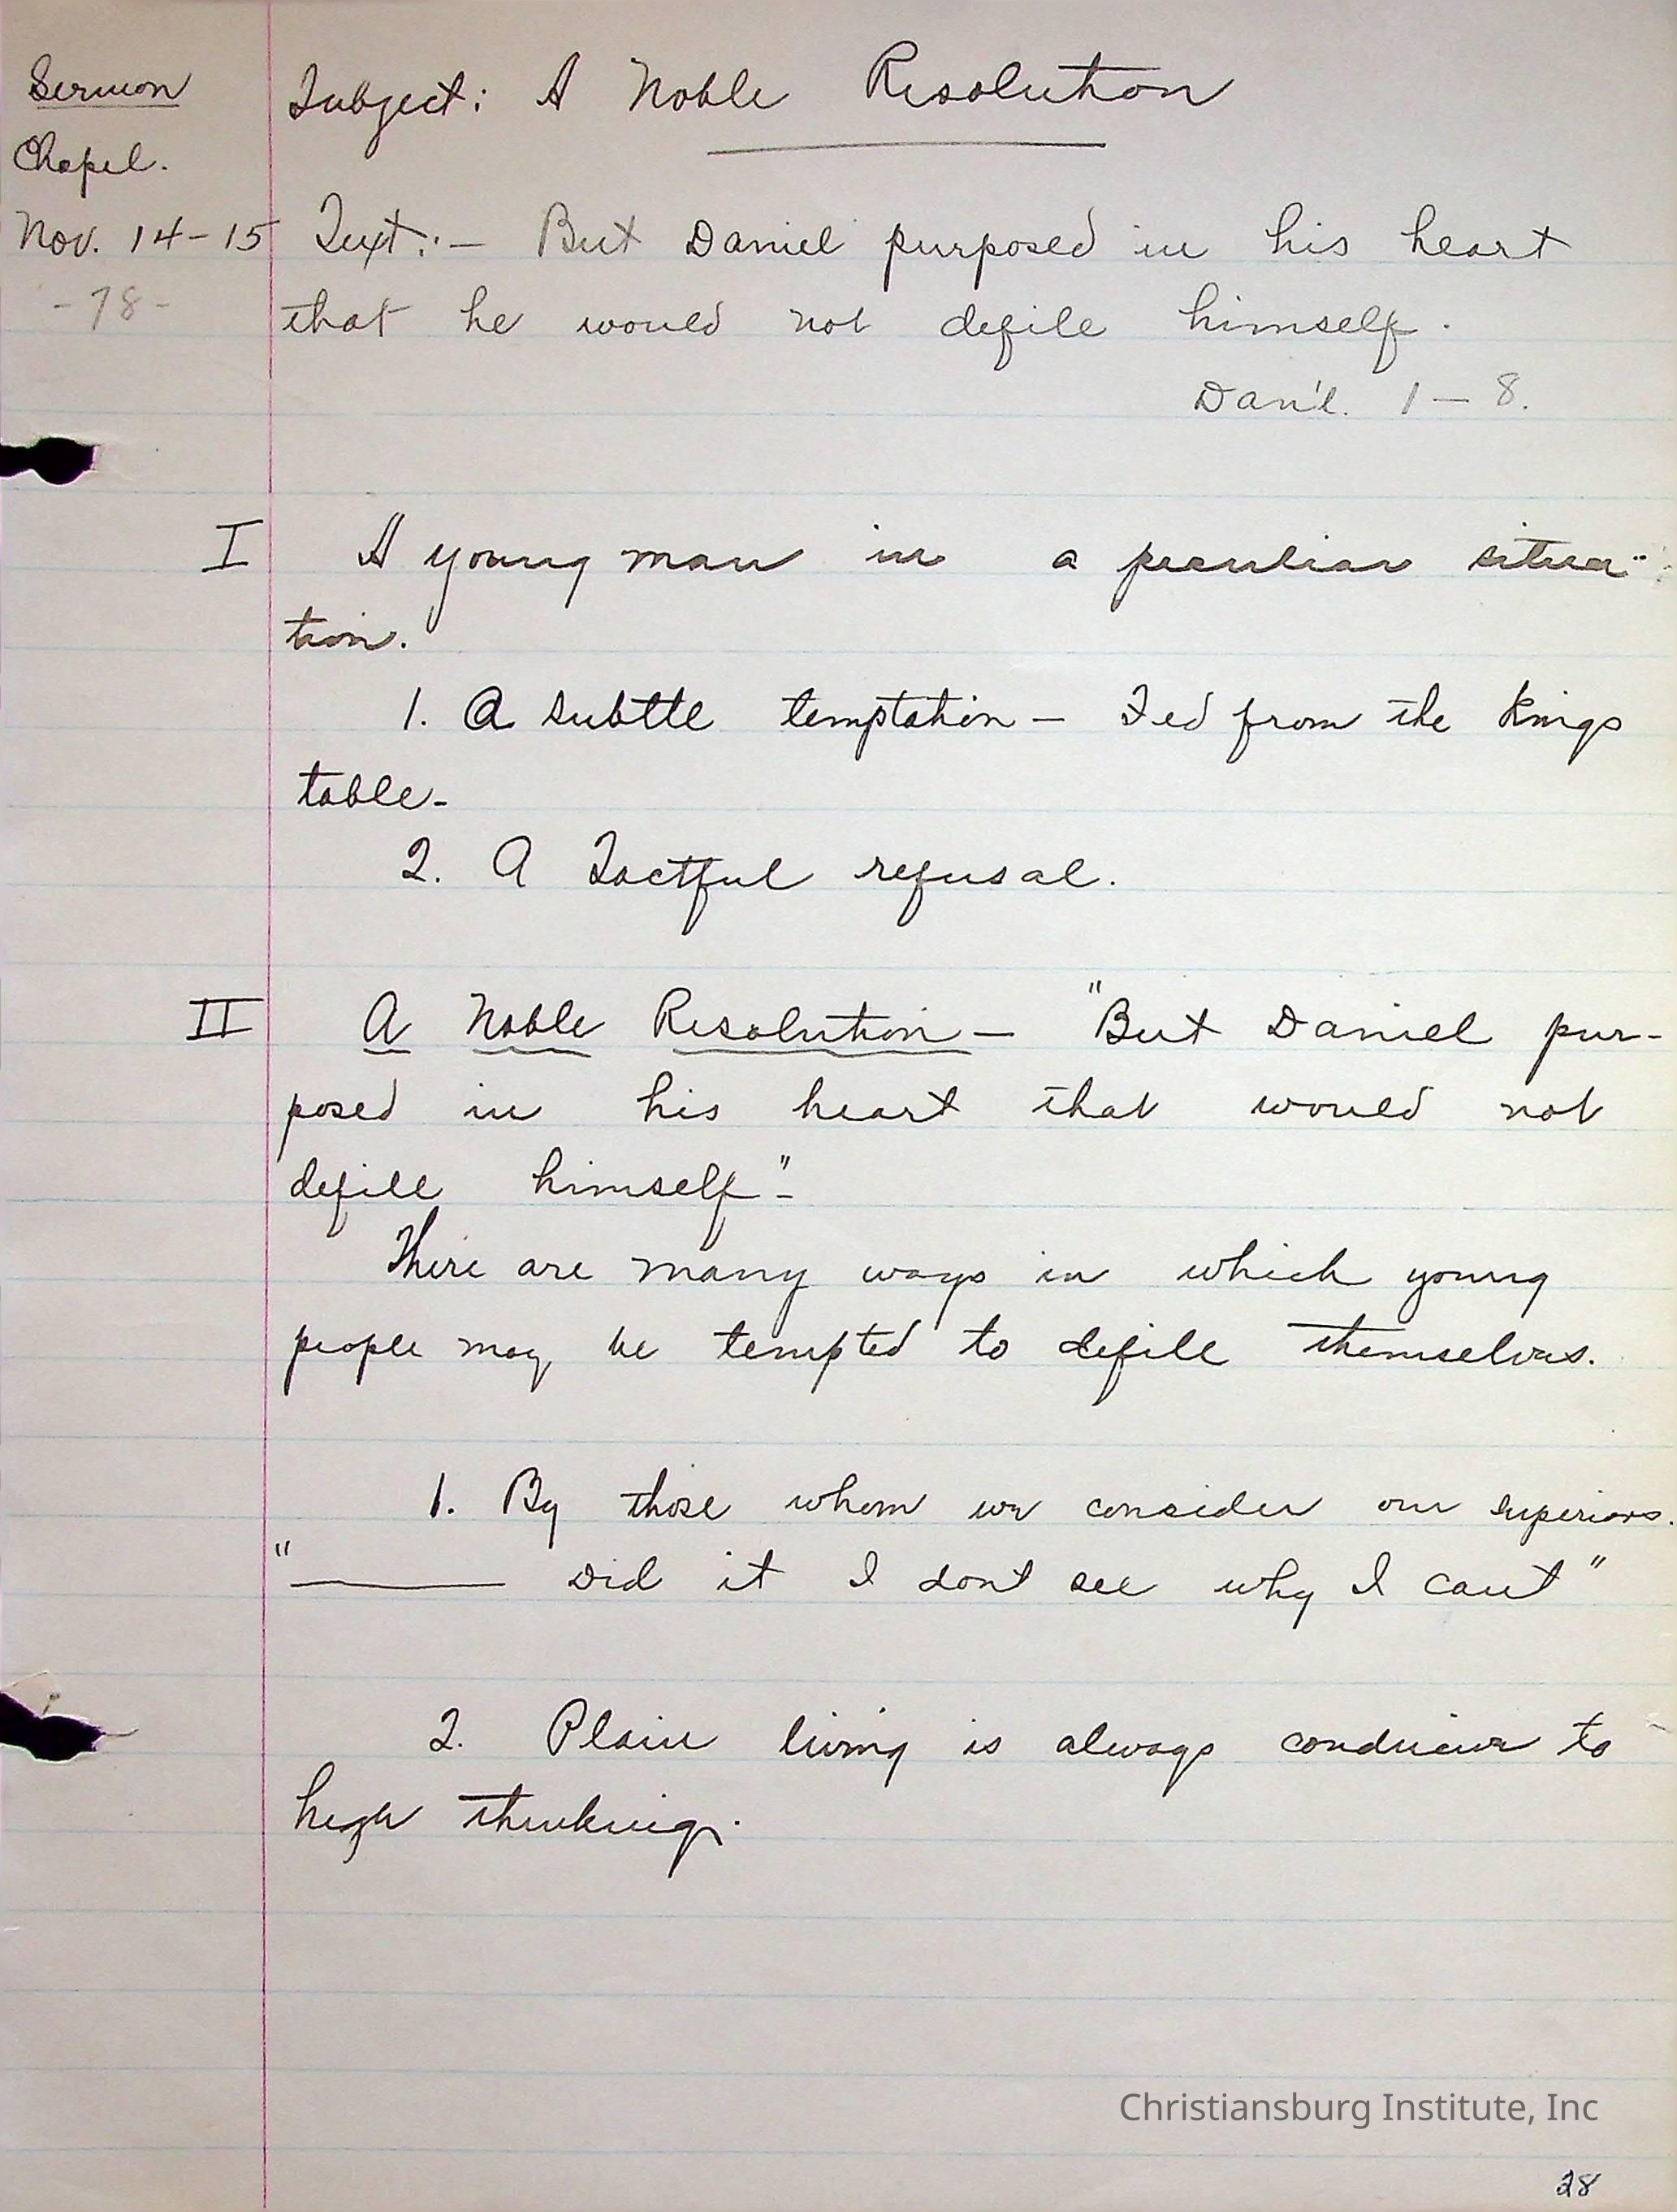 Sermon
Chapel.
Nov. 14-15
-78-
Subject: A Noble Resolution
Text:- But Daniel purposed in his heart
that he would not defile himself.
Dan'l. 1-8.
I A young man in a peculiar situa-
tion.
1. A subtle temptation - Fed from the Kings
table-
2. A Tactful refusal.
II A Noble Resolution - "But Daniel pur-
posed in his heart that would not
defile himself"-
There are many ways in which young
people may be tempted to defile themselves.
1. By those whom we consider our superiors.
"______ Did it I dont see why I cant"
2. Plain living is always conducive to
high thinking.
Christiansburg Institute, Inc
28